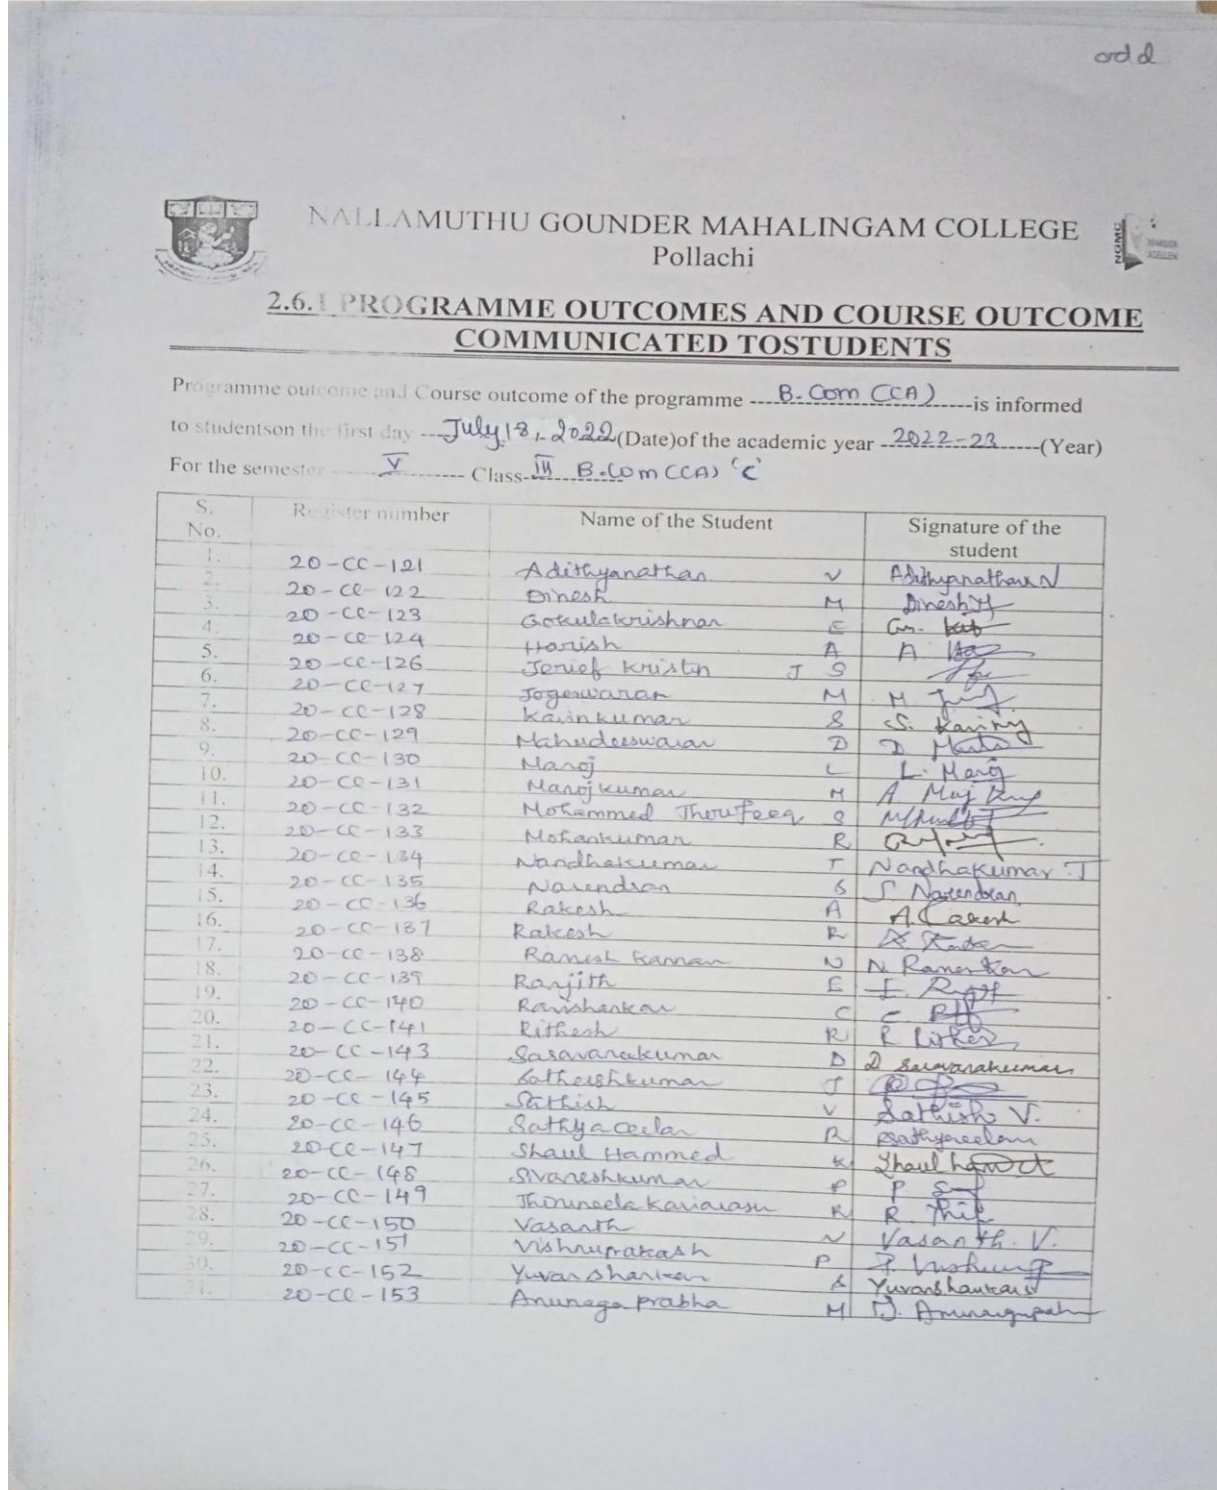 odd
NALLAMUTHU GOUNDER MAHALINGAM COLLEGE
Pollachi
NGMC
2.6.1 PROGRAMME OUTCOMES AND COURSE OUTCOME
COMMUNICATED TOSTUDENTS
Programme outcome and Course outcome of the programme ----B. Com (CCA)-----is informed
to studentson the first day ---July 18, 2022(Date)of the academic year -2022-23------(Year)
For the semester -------V--------- Class-III B.Com (CCA) 'C'
S. No. Register number Name of the Student Signature of the student
1. 20-CC-121 Adithyanathan V Adithyanathan V
2. 20-CC-122 Dinesh M Dinesh M
3. 20-CC-123 Gokulakrishnan E
4. 20-CC-124 Harish A A
5. 20-CC-126 Jerief Kristin J S
6. 20-CC-127 Jogeswaran M M
7. 20-CC-128 Kavinkumar S S.
8. 20-CC-129 Mahudeeswaran D D
9. 20-CC-130 Manoj L L. Manoj
10. 20-CC-131 Manojkumar M A.
11. 20-CC-132 Mohammed Thoufeeq S
12. 20-CC-133 Mohankumar R
13. 20-CC-134 Nandhakumar T Nandhakumar T
14. 20-CC-135 Narendran S S Narendran
15. 20-CC-136 Rakesh A A Rakesh
16. 20-CC-137 Rakesh R
17. 20-CC-138 Ramesh Kannan N N.
18. 20-CC-139 Ranjith E E.
19. 20-CC-140 Ravishankar C C
20. 20-CC-141 Rithesh R R
21. 20-CC-143 Saravanakumar D D Saravanakumar
22. 20-CC-144 Satheishkumar J
23. 20-CC-145 Sathish V Sathish V.
24. 20-CC-146 Sathyaceelan R
25. 20-CC-147 Shaul Hammed K
26. 20-CC-148 Sivaneshkumar P P
27. 20-CC-149 R R
28. 20-CC-150 Vasanth V Vasanth. V.
29. 20-CC-151 Vishnuprakash P
30. 20-CC-152 Yuvan Shankar S Yuvanshankar S
31. 20-CC-153 Anunaga Prabha M